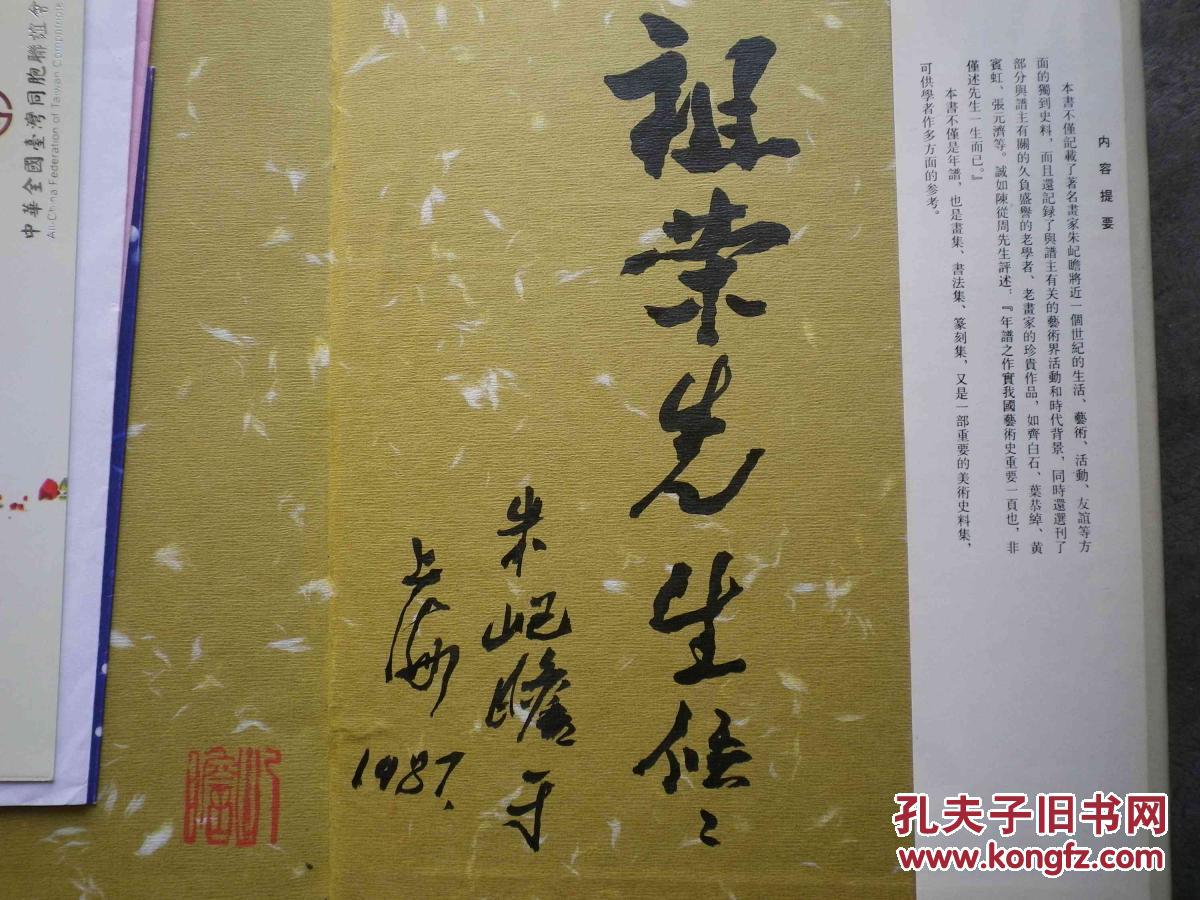 内容提要
本書不僅記載了著名畫家朱屺瞻將近一個世紀的生活、藝術、活動、友誼等方
面的獨到史料，而且還記録了與譜主有关的藝術界活動和時代背景，同時還選刊了
部分與譜主有關的久負盛譽的老學者、老畫家的珍貴作品，如齊白石、葉恭綽、黃
賓虹、張元濟等。誠如陳從周先生評述：『年譜之作實我國藝術史重要一頁也，非
僅述先生一生而已。』
本書不僅是年譜，也是畫集、書法集、篆刻集，又是一部重要的美術史料集，
可供學者作多方面的参考。
祖荣先生
朱屺瞻于
上海
1987.
中華全國臺灣同胞聯誼會
All-China Federation of Taiwan Compatriots
孔夫子旧书网
www.kongfz.com